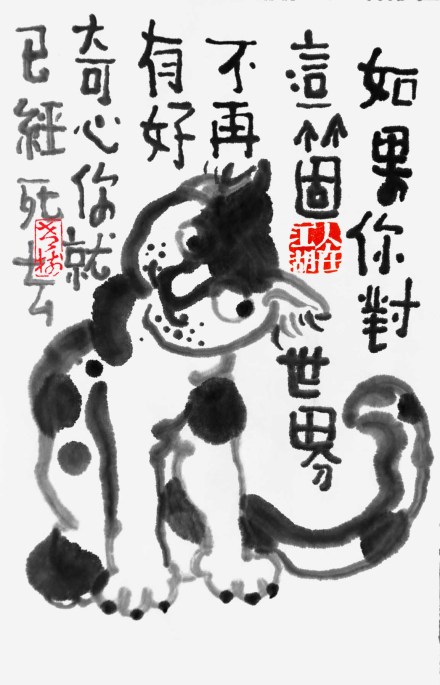 如果你對
這箇
世界
不再
有好
奇心你就
已經死去
人在
江湖
老樹